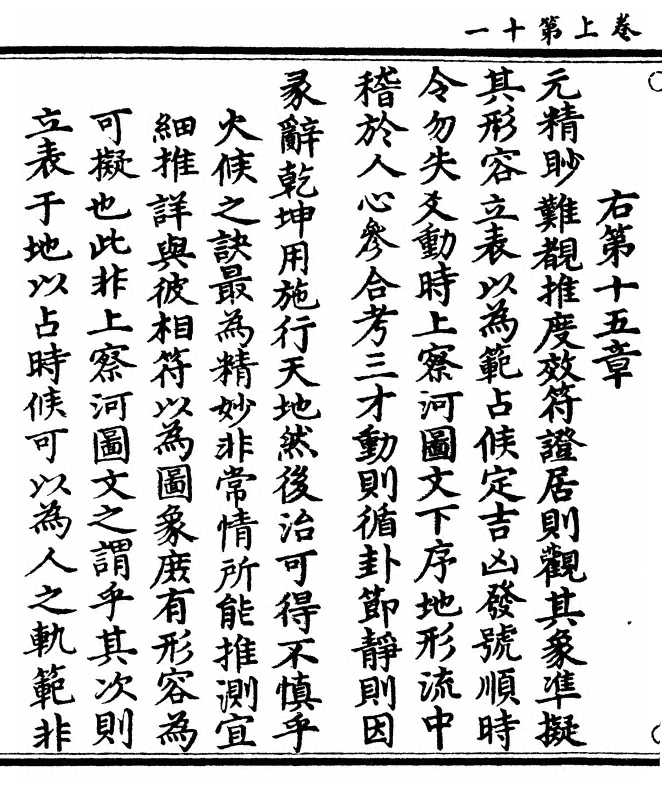 卷上第十一
右第十五章
元精眇難覩推度效符證居則觀其象準擬
其形容立表以為範占候定吉凶發號順時
令勿失爻動時上察河圖文下序地形流中
稽於人心參合考三才動則循卦節靜則因
彖辭乾坤用施行天地然後治可得不慎乎
火候之訣最為精妙非常情所能推測宜
細推詳與彼相符以為圖象庶有形容為
可擬也此非上察河圖文之謂乎其次則
立表于地以占時候可以為人之軌範非